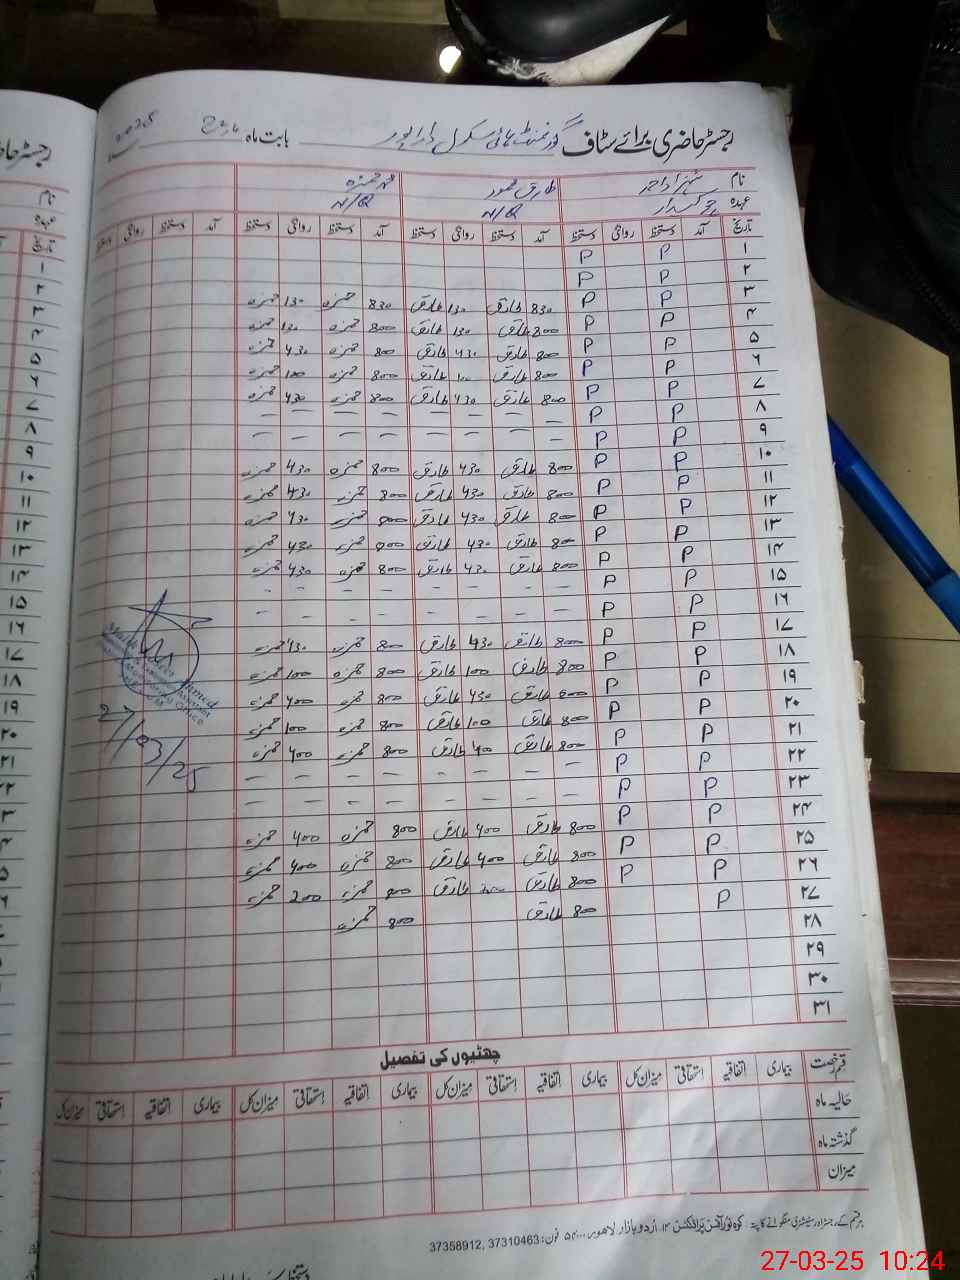 رجسٹر حاضری برائے سٹاف گورنمنٹ ہائی سکول داراپور بابت ماہ مارچ 2025
نام شہزاد احمد طارق محمود محمد حمزہ
عہدہ چوکیدار N/Q N/Q
تاریخ آمد دستخط روانگی دستخط آمد دستخط روانگی دستخط آمد دستخط روانگی دستخط آمد دستخط روانگی دستخط
۱ P P
۲ P P
۳ P P 830 طارق 130 طارق 830 حمزہ 130 حمزہ
۴ P P 800 طارق 130 طارق 800 حمزہ 130 حمزہ
۵ P P 800 طارق 430 طارق 800 حمزہ 430 حمزہ
۶ P P 800 طارق 100 طارق 800 حمزہ 100 حمزہ
۷ P P 800 طارق 430 طارق 800 حمزہ 430 حمزہ
۸ P P – – – – – – – –
۹ P P – – – – – – – –
۱۰ P P 800 طارق 430 طارق 800 حمزہ 430 حمزہ
۱۱ P P 800 طارق 430 طارق 800 حمزہ 430 حمزہ
۱۲ P P 800 طارق 430 طارق 800 حمزہ 430 حمزہ
۱۳ P P 800 طارق 430 طارق 800 حمزہ 430 حمزہ
۱۴ P P 800 طارق 430 طارق 800 حمزہ 430 حمزہ
۱۵ P P – – – – – – – –
۱۶ P P – – – – – – – –
۱۷ P P 800 طارق 430 طارق 800 حمزہ 430 حمزہ
۱۸ P P 800 طارق 100 طارق 800 حمزہ 100 حمزہ
۱۹ P P 800 طارق 430 طارق 800 حمزہ 400 حمزہ
۲۰ P P 800 طارق 100 طارق 800 حمزہ 100 حمزہ
۲۱ P P 800 طارق 400 طارق 800 حمزہ 400 حمزہ
۲۲ P P – – – – – – – –
۲۳ P P – – – – – – – –
۲۴ P P 800 طارق 400 طارق 800 حمزہ 400 حمزہ
۲۵ P P 800 طارق 400 طارق 800 حمزہ 400 حمزہ
۲۶ P P 800 طارق 200 طارق 800 حمزہ 200 حمزہ
۲۷ P 800 طارق 800 حمزہ
۲۸
۲۹
۳۰
۳۱
27/03/25
چھٹیوں کی تفصیل
قسم رخصت بیماری اتفاقیہ استحقاقی میزان کل بیماری اتفاقیہ استحقاقی میزان کل بیماری اتفاقیہ استحقاقی میزان کل بیماری اتفاقیہ استحقاقی میزان کل
حالیہ ماہ
گذشتہ ماہ
میزان
ہر قسم کے رجسٹر اور سٹیشنری منگوانے کا پتہ: کوہ نور آفس پراڈکٹس ۱۴۔ اردو بازار لاہور۔ ۵۴۰۰۰ فون: 37310463, 37358912
27-03-25 10:24